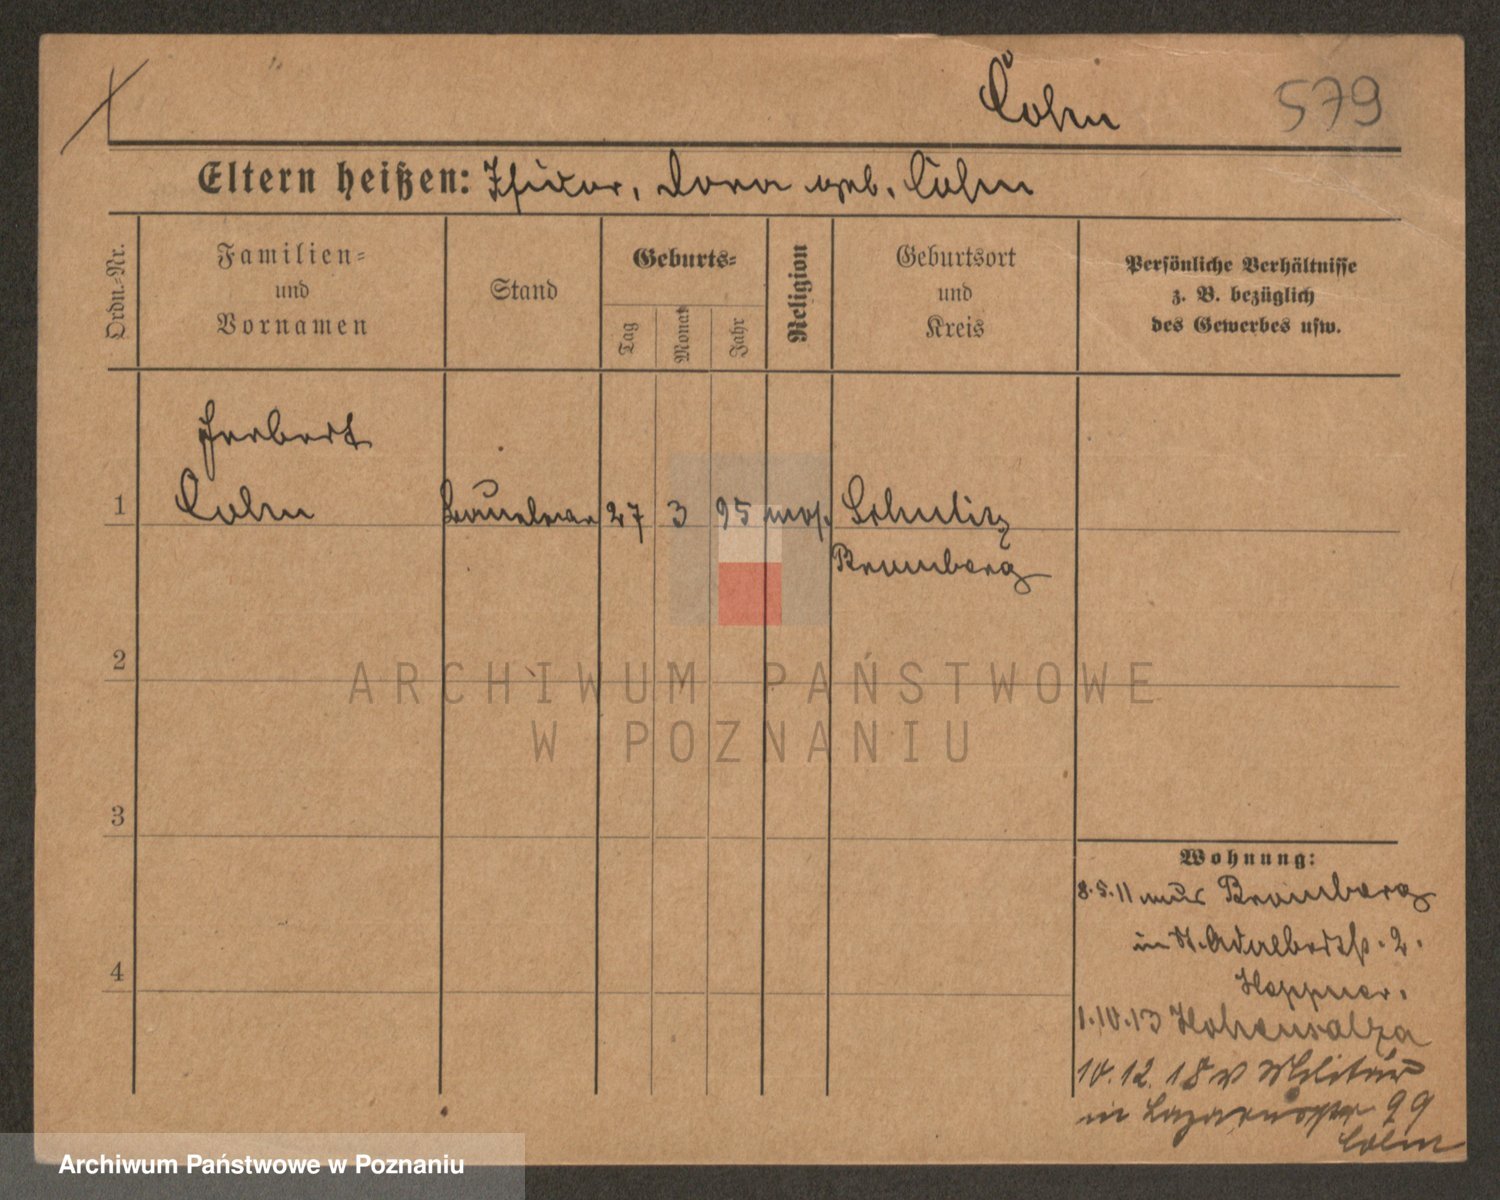 Cohn 579
Eltern heißen: Isidor, Dora geb. Cohn
Ordn.-Nr.
Familien-
und
Vornamen
Stand
Geburts-
Tag
Monat
Jahr
Religion
Geburtsort
und
Kreis
Persönliche Verhältnisse
z. B. bezüglich
des Gewerbes usw.
Herbert
1 Cohn 27 3 95 mos. Schulitz
Bromberg
2
3
4
Wohnung:
8.5.11 aus Bromberg
in St. Adalbertstr. 2.
Heppner.
1.10.13 Hohensalza
10.12.18 v Militär
in Lazarusstr 99
Cohn
ARCHIWUM PAŃSTWOWE
W POZNANIU
Archiwum Państwowe w Poznaniu